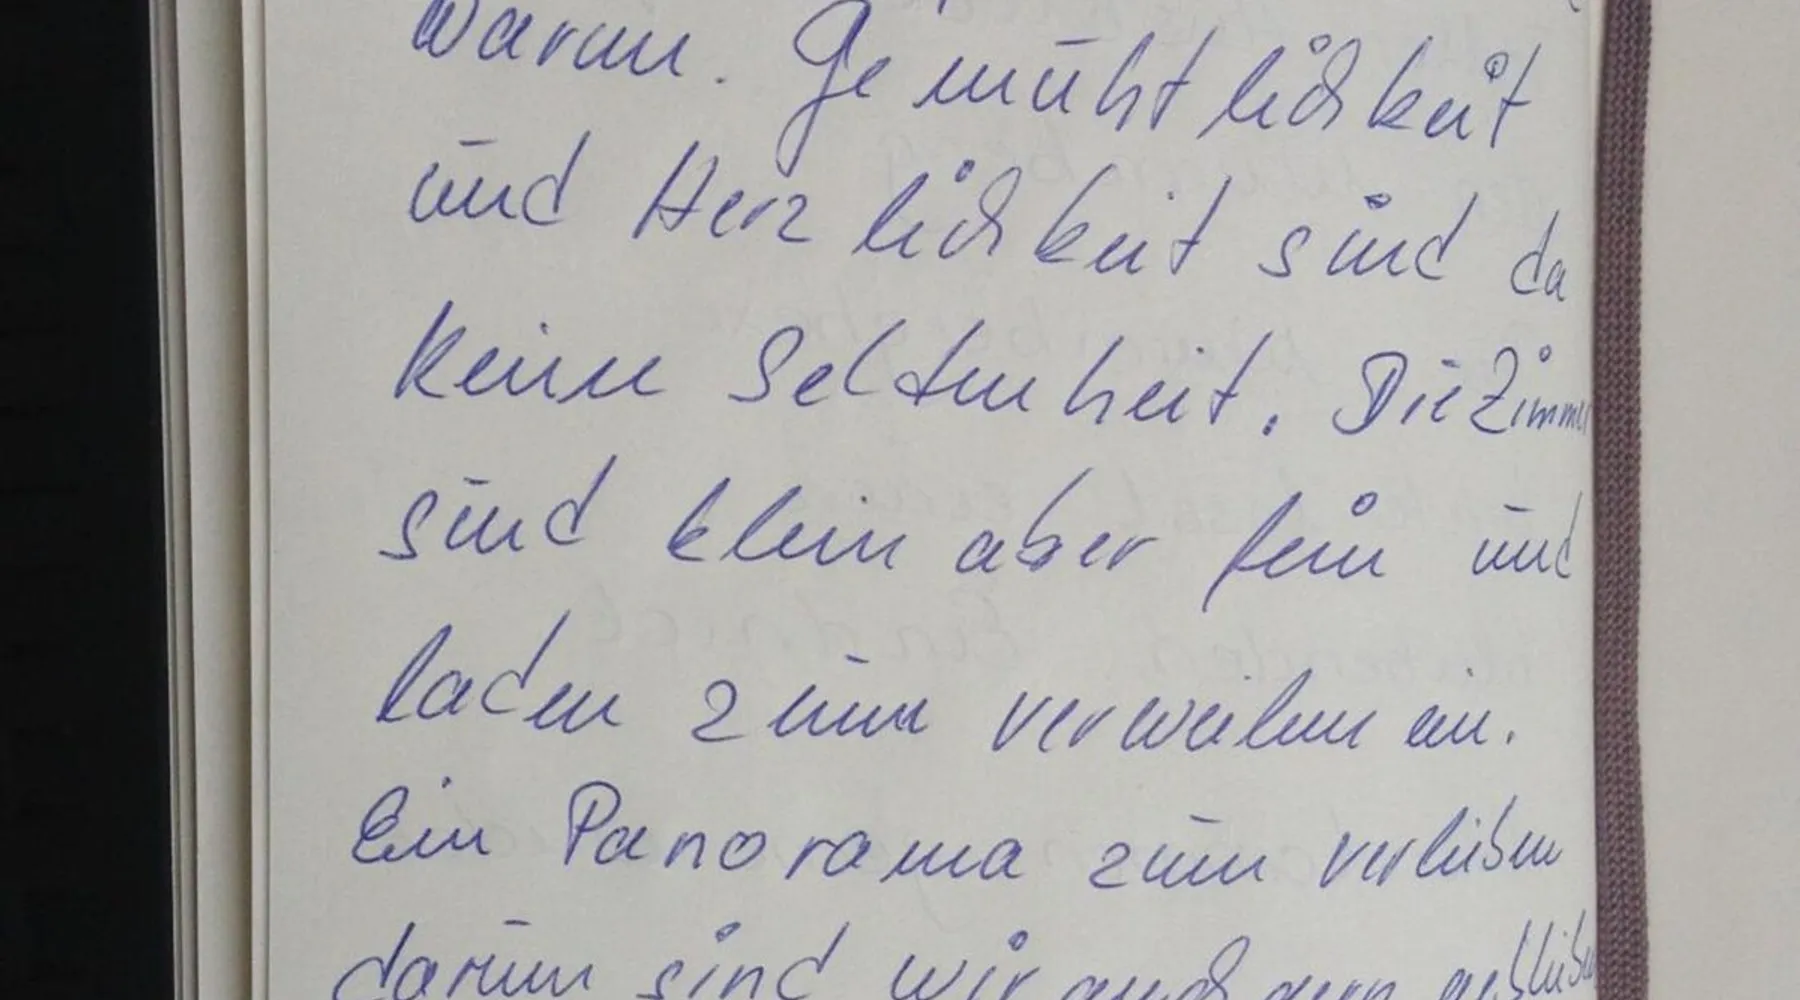 waren. Gemühtlichkeit
und Herzlichkeit sind da
keine Seltenheit. Die Zimmer
sind klein aber fein und
laden zum verweilen ein.
Ein Panorama zum verlieben
darum sind wir auch gern geblieben